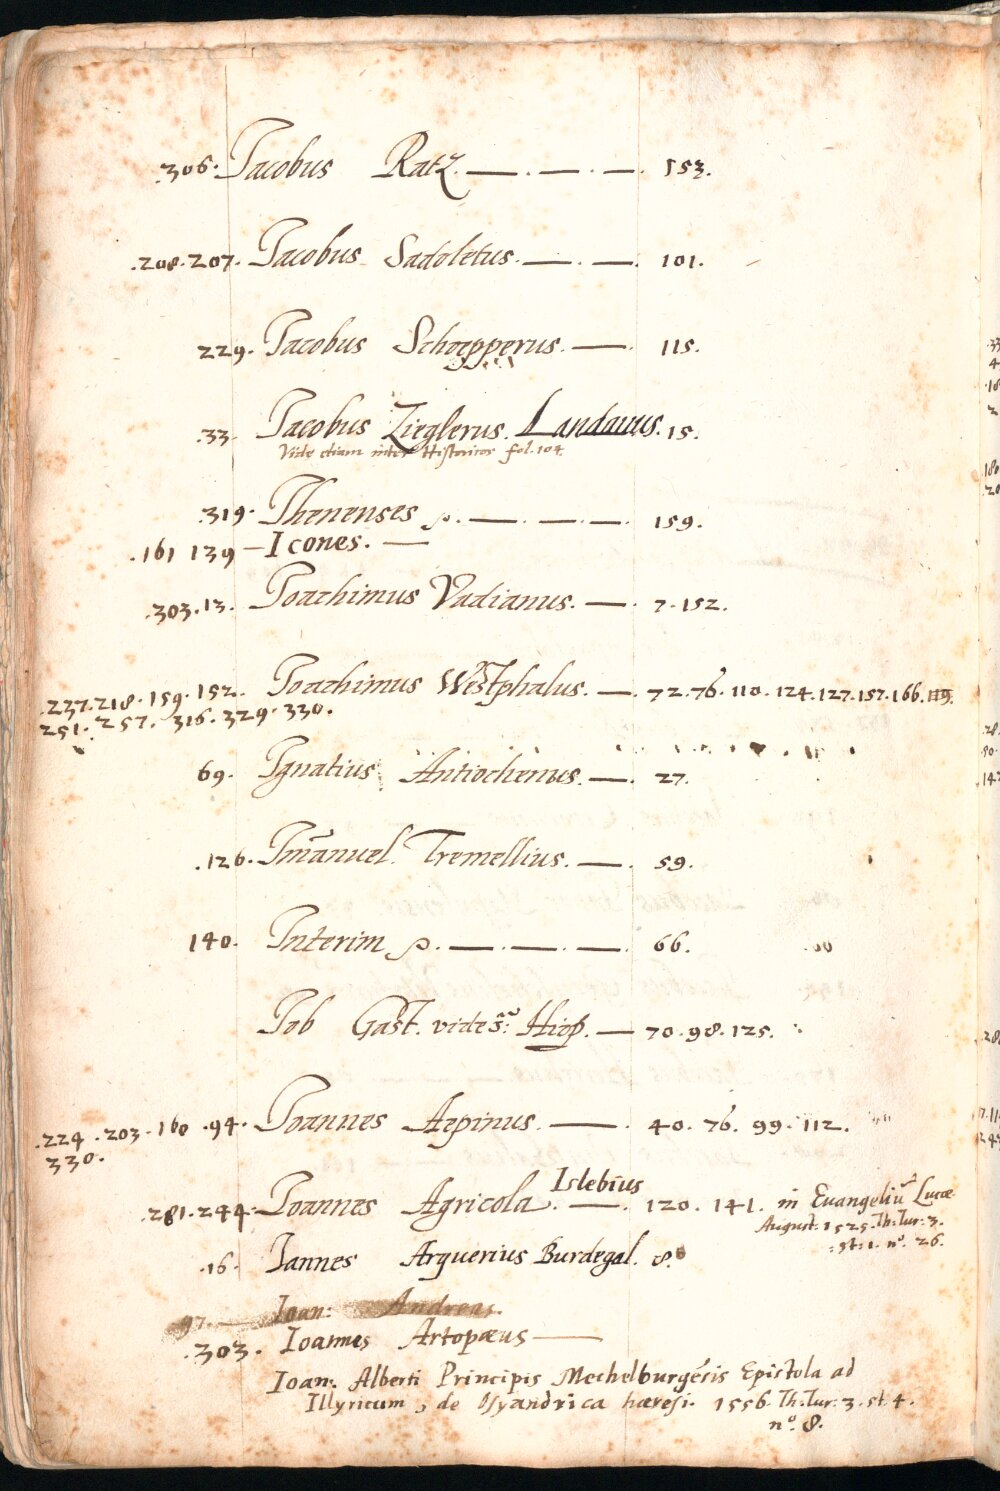 .306. Iacobus Ratz. — . — . — . 153.
.208.207. Iacobus Sadoletus. — . — . 101.
229. Iacobus Schoepperus. — . 115.
.33. Iacobus Zieglerus. Landauus. 15.
Vide etiam inter Historicos fol. 104
.319. Ihenenses — . — . — . 159.
.161 139 — Icones. —
.303.13. Ioachimus Vadianus. — . 7.152.
.237.218.159.152. Ioachimus Westphalus. — . 72.76.110.124.127.157.166.119.
251. 257. 316. 329. 330.
69. Ignatius Antiochenus. — . 27.
.126. Im̄anuel. Tremellius. — . 59.
140. Interim . — . — . — . 66.
Iob Gast. vide Hiob. — 70.98.125.
.224 .203. 160 .94. Ioannes Aepinus. — . 40. 76. 99. 112.
330.
.281.244. Ioannes Agricola Islebius. — . 120. 141. in Euangeliū Lucae
August: 1525. Th: Tur: 3.
: st: 1. nº. 26.
.16. Iannes Arguerius Burdegal. 8.
97. Ioan: Andreas.
.303. Ioannes Artopæus —
Ioan: Alberti Principis Mechelburgēsis Epistola ad
Illyricum, de Osyandrica hæresi. 1556. Th: Tur: 3. st 4.
nº. 8.